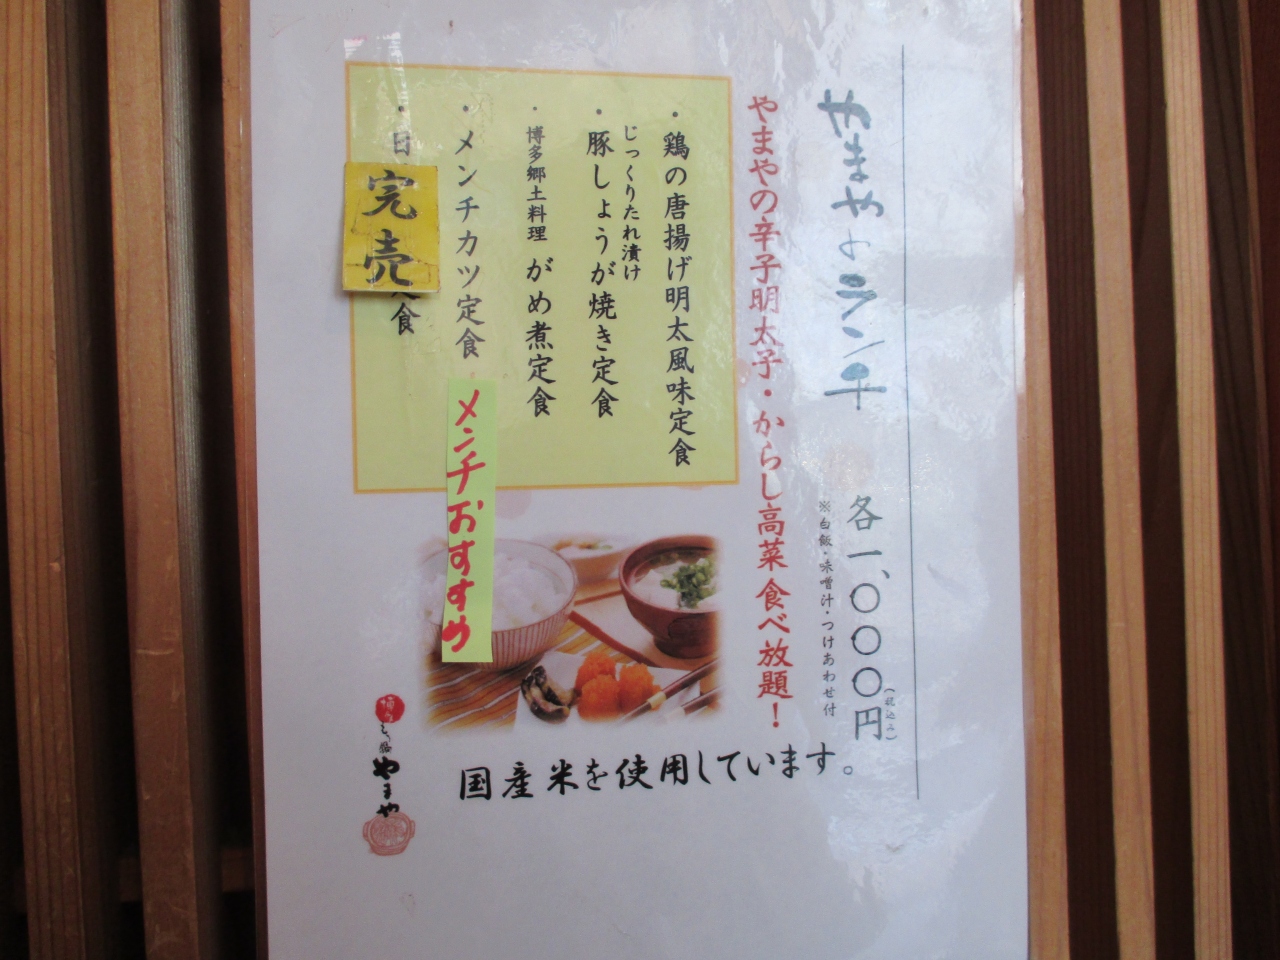 やまやのランチ 各一、〇〇〇円
(税込み)
※白飯・味噌汁・つけあわせ付
やまやの辛子明太子・からし高菜食べ放題！
・鶏の唐揚げ明太風味定食
じっくりたれ漬け
・豚しょうが焼き定食
・博多郷土料理 がめ煮定食
・メンチカツ定食
メンチおすすめ
・日
完売
食
国産米を使用しています。
やまや